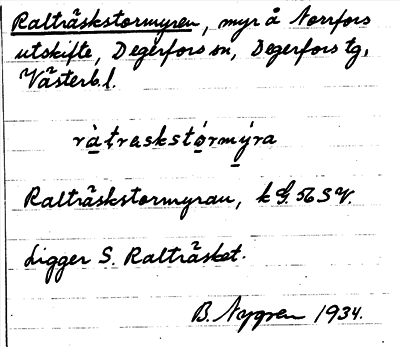 Ralträskstormyren, myr å Norrfors
utskifte, Degerfors sn, Degerfors tg,
Västerb.l.
rȧ̱traskstó̱rmý̱ra
Ralträskstormyran, k G. 56 S V.
Ligger S. Ralträsket.
B. Nygren 1934.